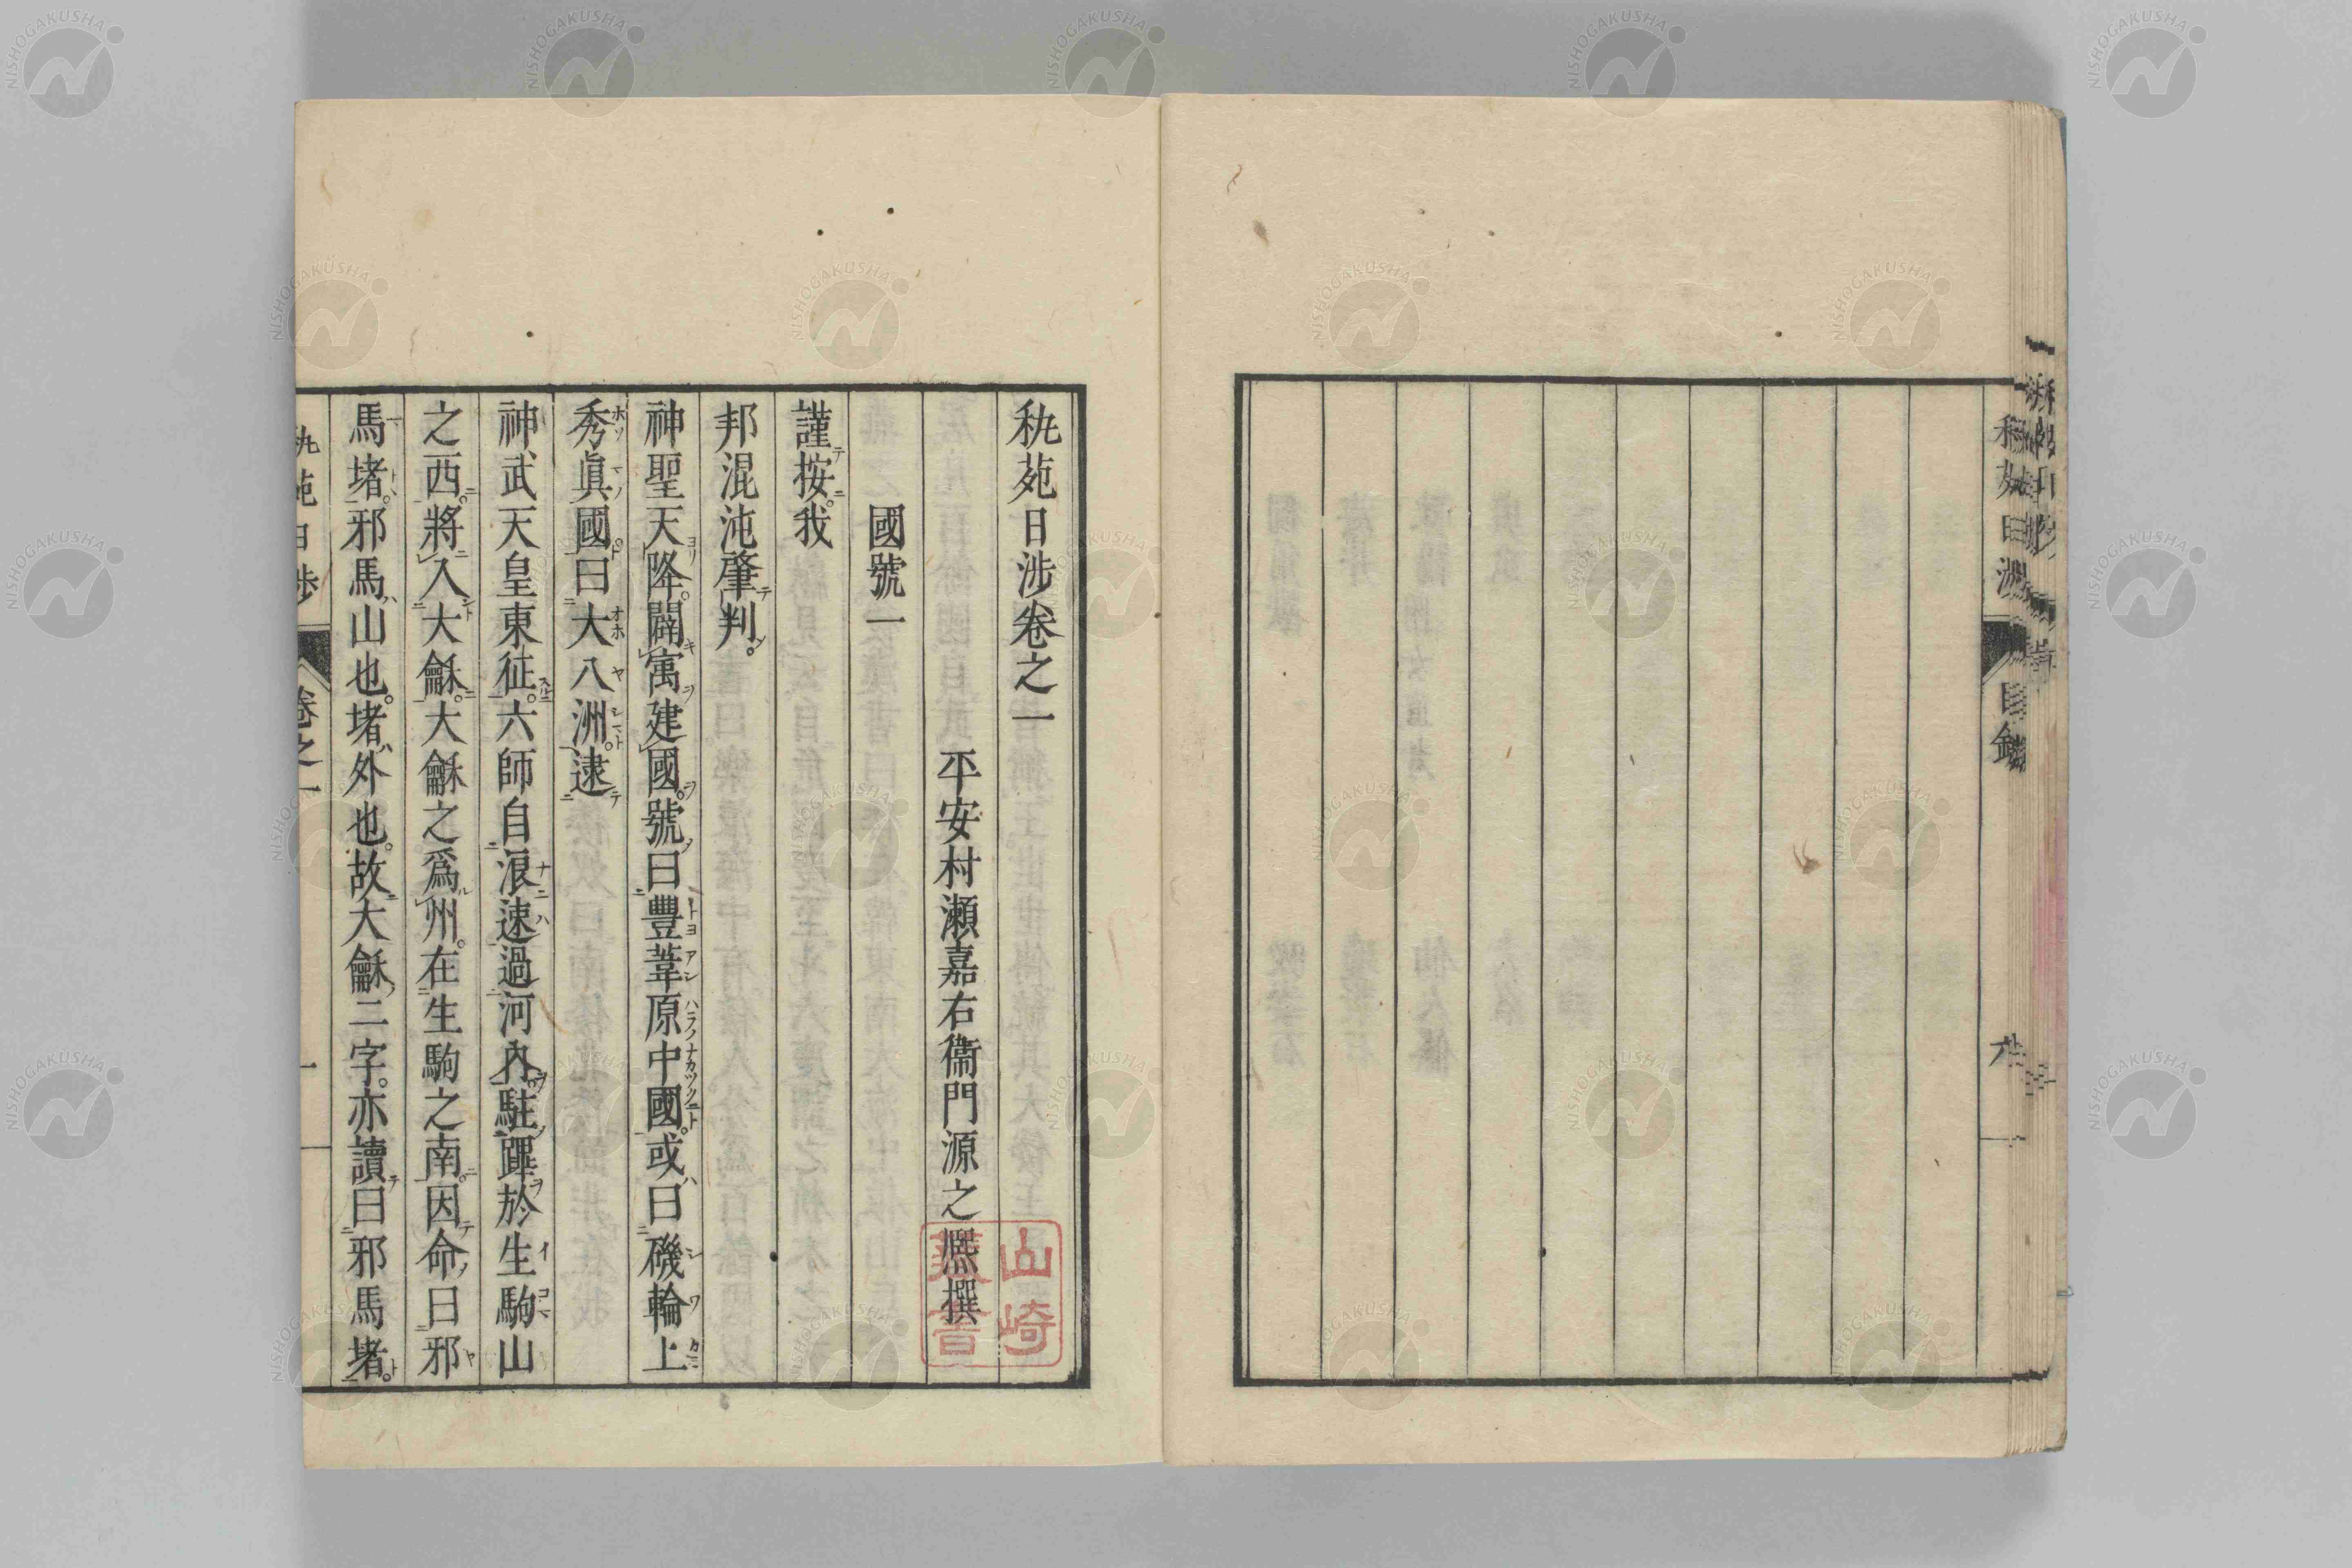 秇苑日涉卷之一
平安村瀬嘉右衞門源之熈撰
國號一
謹按。我
邦混沌肇判。
神聖天降。闢寓建國。號曰豐葦原中國。或曰磯輪上
秀眞國。曰大八洲。逮
神武天皇東征。六師自浪速過河內。駐蹕於生駒山
之西。將入大龢。大龢之爲州。在生駒之南。因命曰邪
馬堵。邪馬山也。堵外也。故大龢二字。亦讀曰邪馬堵。
秇苑日涉
卷之一
一
山崎
藏書
目錄
NISHOGAKUSHA